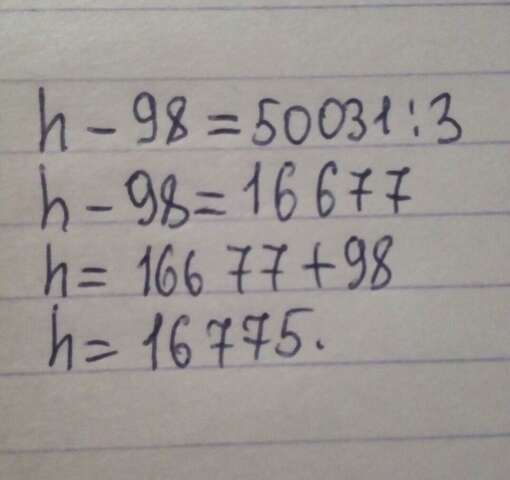 h - 98 = 50031 : 3
h - 98 = 16 677
h = 166 77 + 98
h = 16 775.